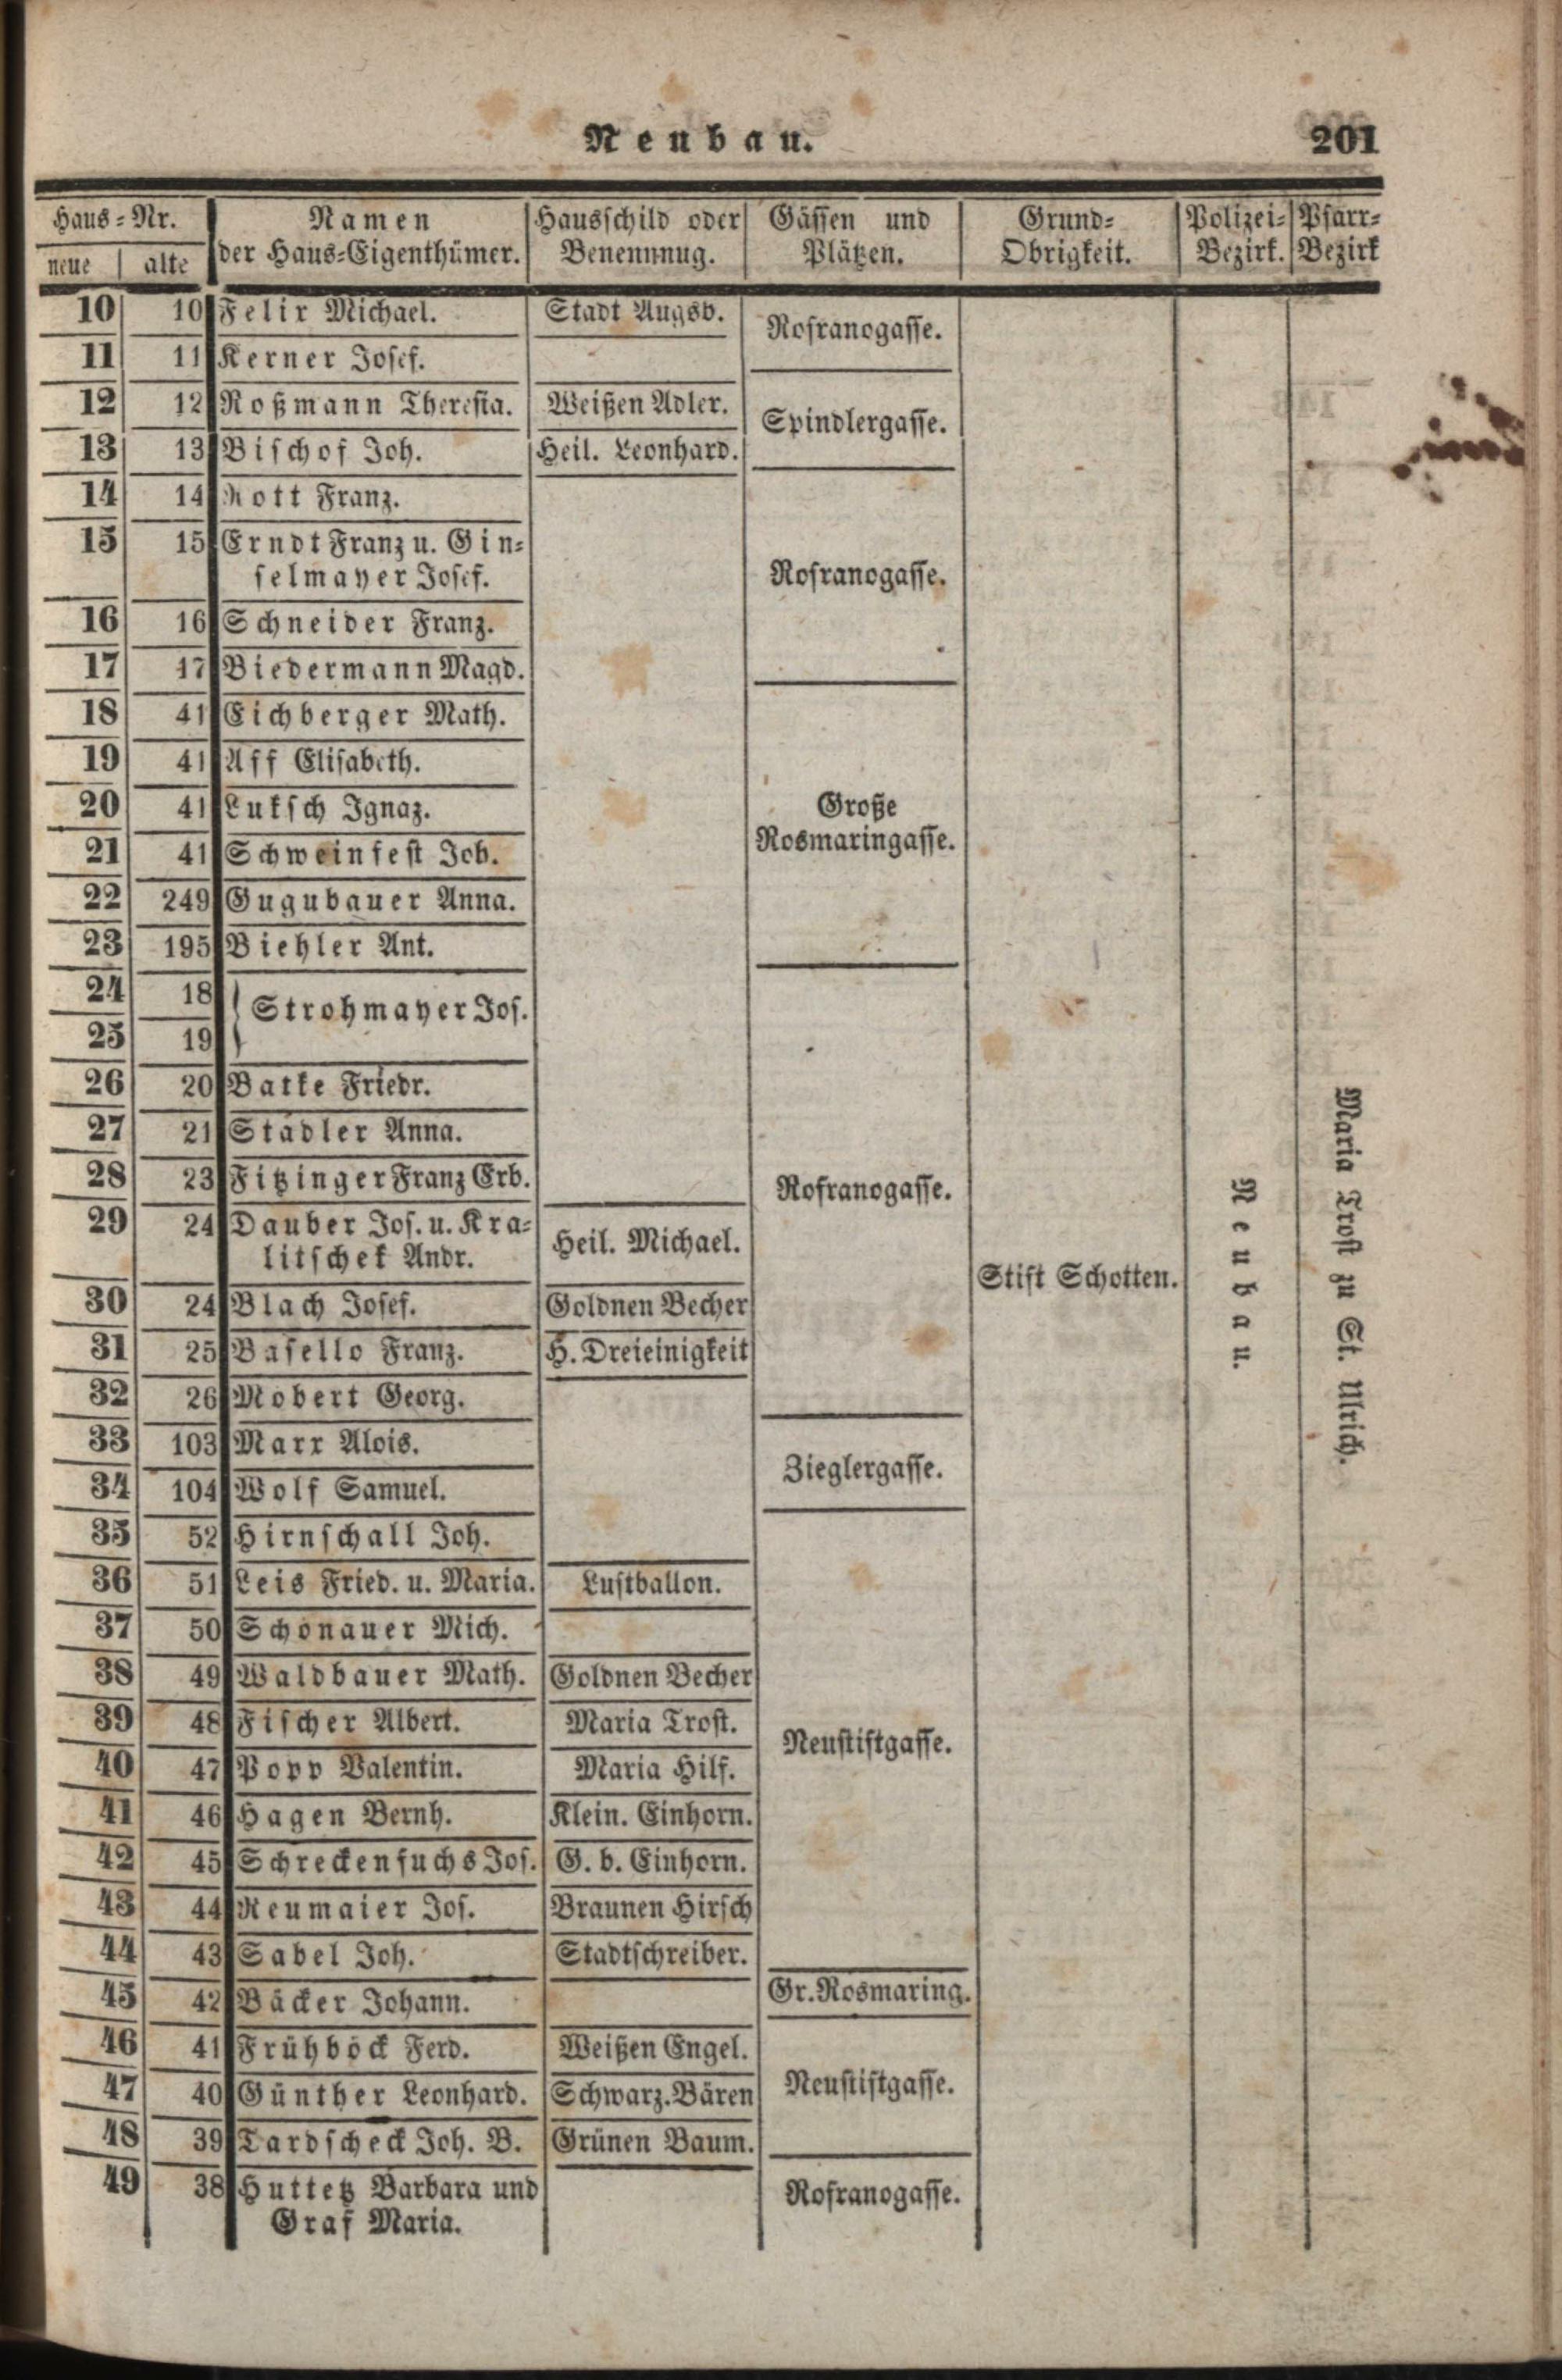 Neubau. 201
Haus-Nr. Namen Hausschild oder Gässen und Grund- Polizei- Pfarr-
neue alte der Haus-Eigenthümer. Benennnug. Plätzen. Obrigkeit. Bezirk. Bezirk
10 10 Felix Michael. Stadt Augsb. Rofranogasse.
11 11 Kerner Josef.
12 12 Roßmann Theresia. Weißen Adler. Spindlergasse.
13 13 Bischof Joh. Heil. Leonhard.
14 14 Rott Franz.
15 15 Erndt Franz u. Gin-
selmayer Josef. Rofranogasse.
16 16 Schneider Franz.
17 17 Biedermann Magd.
18 41 Eichberger Math.
19 41 Aff Elisabeth.
20 41 Luksch Ignaz. Große
21 41 Schweinfest Joh. Rosmaringasse.
22 249 Gugubauer Anna.
23 195 Biehler Ant.
24 18 Strohmayer Jos.
25 19
26 20 Batke Friedr.
27 21 Stadler Anna.
28 23 Fitzinger Franz Erb. Rofranogasse.
29 24 Dauber Jos. u. Kra-
litschek Andr. Heil. Michael.
30 24 Blach Josef. Goldnen Becher Stift Schotten. Neubau. Maria Trost zu St. Ulrich.
31 25 Basello Franz. H. Dreieinigkeit
32 26 Mobert Georg.
33 103 Marx Alois. Zieglergasse.
34 104 Wolf Samuel.
35 52 Hirnschall Joh.
36 51 Leis Fried. u. Maria. Luftballon.
37 50 Schönauer Mich.
38 49 Waldbauer Math. Goldnen Becher
39 48 Fischer Albert. Maria Trost. Neustiftgasse.
40 47 Popp Valentin. Maria Hilf.
41 46 Hagen Bernh. Klein. Einhorn.
42 45 Schreckenfuchs Jos. G. b. Einhorn.
43 44 Neumaier Jos. Braunen Hirsch
44 43 Sabel Joh. Stadtschreiber.
45 42 Bäcker Johann. Gr. Rosmaring.
46 41 Frühböck Ferd. Weißen Engel.
47 40 Günther Leonhard. Schwarz. Bären Neustiftgasse.
48 39 Tardscheck Joh. B. Grünen Baum.
49 38 Huttetz Barbara und Rofranogasse.
Graf Maria.